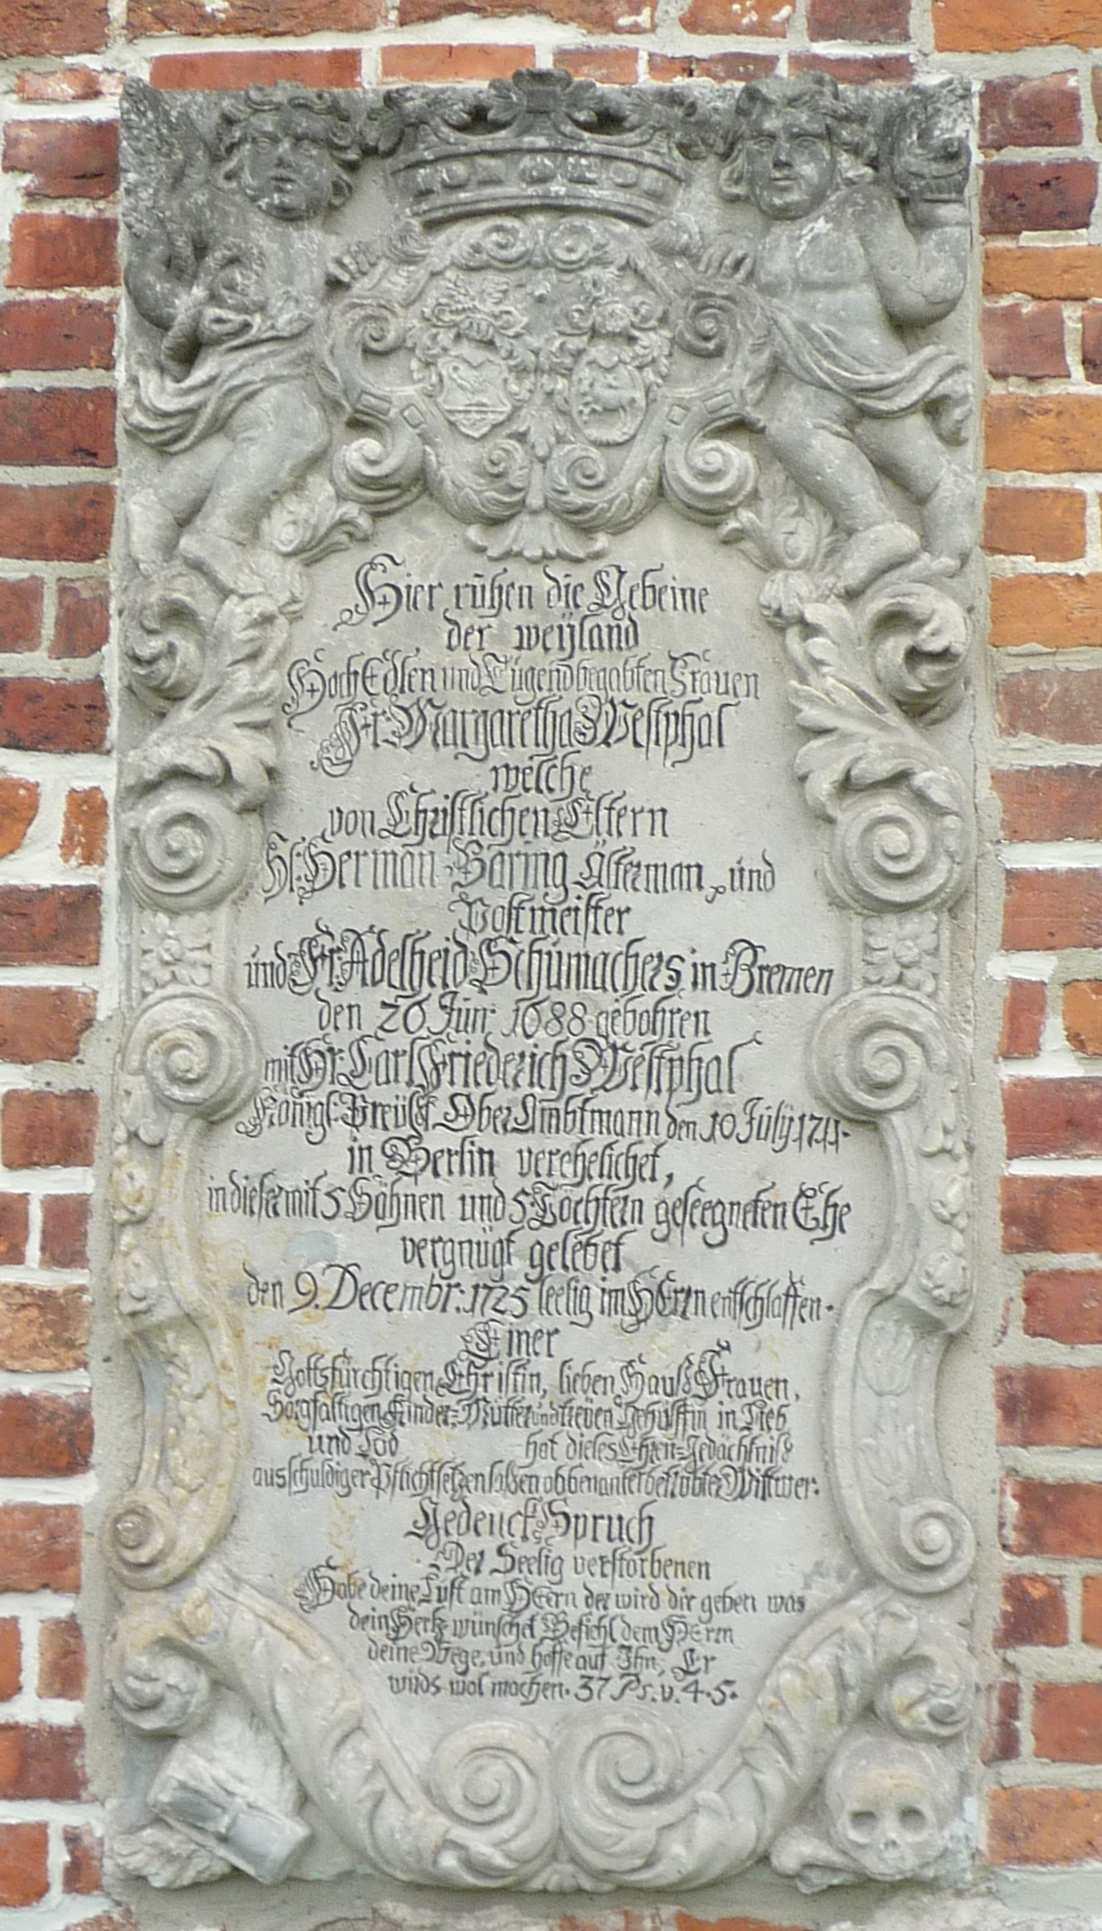 Hier rühen die Gebeine
der weÿland
HochEdlen und Tügendbegabten Frauen
Fr. Margaretha Westphal
welche
von Christlichen Eltern
Hl: Herman Baring Älterman, und
Postmeister
und Fr. Adelheid Schümachers in Bremen
den 26 Jün: 1688 gebohren
mit Hr. Carl Friederich Westphal
Königl: Preüsl Ober Ambtmann den 10 Jülÿ 1711.
in Berlin verehelichet,
in dieser mit 5 Söhnen und 5 Töchtern geseegneten Ehe
vergnügt gelebet
den 9. Decembr: 1725 seelig im HErrn entschlaffen.
Einer
Gottsfürchtigen Christin, lieben Hauß Frauen,
Sorgfältigen Kinder=Mutter und treüen Gehülffin in Lieb
und Tod hat dieses Ehren=Gedächtniß
aus schuldiger Pflicht setzen laßen obbenanter Wittwer.
Gedenck Spruch
Der Seelig verstorbenen
Habe deine Lust am HErrn der wird dir geben was
dein Hertz wünschet Befiehl dem HErrn
deine Wege, und hoffe auf Ihn, Er
wirds wol machen. 37 Ps. v. 4. 5.